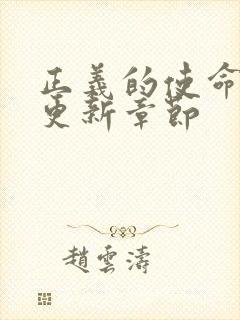 正義的使命
更新章節
趙雲濤